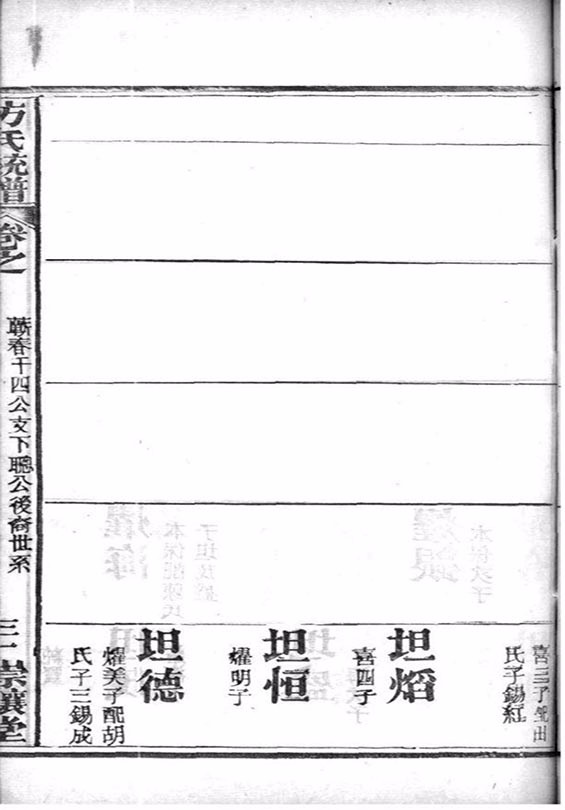 喜三子配田
氏子錫紅
坦熖
喜四子
坦恒
燿明子
坦德
燿美子配胡
氏子三錫成
方氏統譜
卷之
蘄春千四公支下聰公後裔世系
三
崇讓堂